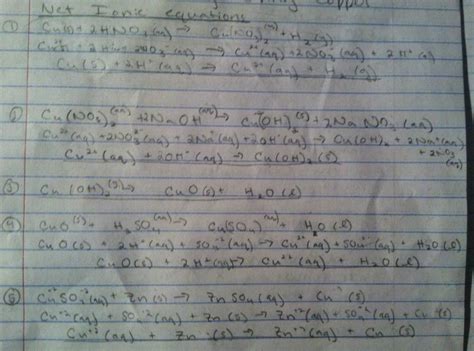 Net Ionic equations
① Cu(s) + 2HNO₃(aq) → Cu(NO₃)₂(aq) + H₂(g)
→ Cu²⁺(aq) + 2NO₃⁻(aq) +
Cu(s) + 2H⁺(aq) → Cu²⁺(aq) + H₂(g)
② Cu(NO₃)₂(aq) + 2NaOH(aq) → Cu(OH)₂(s) + 2NaNO₃(aq)
Cu²⁺(aq) + 2NO₃⁻(aq) + 2Na⁺(aq) + 2OH⁻(aq) → Cu(OH)₂ + 2Na⁺(aq) + 2NO₃⁻(aq)
Cu²⁺(aq) + 2OH⁻(aq) → Cu(OH)₂(s)
③ Cu(OH)₂(s) → CuO(s) + H₂O(l)
④ CuO(s) + H₂SO₄(aq) → Cu(SO₄)(aq) + H₂O(l)
CuO(s) + 2H⁺(aq) + SO₄⁻²(aq) → Cu⁺²(aq) + SO₄⁻²(aq) + H₂O(l)
CuO(s) + 2H⁺(aq) → Cu⁺²(aq) + H₂O(l)
⑤ Cu⁺²SO₄⁻²(aq) + Zn(s) → ZnSO₄(aq) + Cu(s)
Cu⁺²(aq) + SO₄⁻²(aq) + Zn(s) → Zn⁺²(aq) + SO₄⁻²(aq) + Cu(s)
Cu⁺²(aq) + Zn(s) → Zn⁺²(aq) + Cu(s)